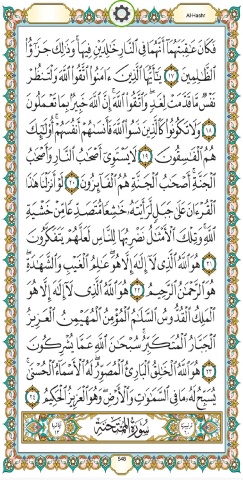 Al-Hashr
فَكَانَ عَٰقِبَتَهُمَآ أَنَّهُمَا فِى ٱلنَّارِ خَٰلِدَيْنِ فِيهَا ۚ وَذَٰلِكَ جَزَٰٓؤُا۟
ٱلظَّٰلِمِينَ ١٧ يَٰٓأَيُّهَا ٱلَّذِينَ ءَامَنُوا۟ ٱتَّقُوا۟ ٱللَّهَ وَلْتَنظُرْ
نَفْسٌ مَّا قَدَّمَتْ لِغَدٍ ۖ وَٱتَّقُوا۟ ٱللَّهَ ۚ إِنَّ ٱللَّهَ خَبِيرٌۢ بِمَا تَعْمَلُونَ
١٨ وَلَا تَكُونُوا۟ كَٱلَّذِينَ نَسُوا۟ ٱللَّهَ فَأَنسَىٰهُمْ أَنفُسَهُمْ ۚ أُو۟لَٰٓئِكَ
هُمُ ٱلْفَٰسِقُونَ ١٩ لَا يَسْتَوِىٓ أَصْحَٰبُ ٱلنَّارِ وَأَصْحَٰبُ
ٱلْجَنَّةِ ۚ أَصْحَٰبُ ٱلْجَنَّةِ هُمُ ٱلْفَآئِزُونَ ٢٠ لَوْ أَنزَلْنَا هَٰذَا
ٱلْقُرْءَانَ عَلَىٰ جَبَلٍ لَّرَأَيْتَهُۥ خَٰشِعًا مُّتَصَدِّعًا مِّنْ خَشْيَةِ
ٱللَّهِ ۚ وَتِلْكَ ٱلْأَمْثَٰلُ نَضْرِبُهَا لِلنَّاسِ لَعَلَّهُمْ يَتَفَكَّرُونَ
٢١ هُوَ ٱللَّهُ ٱلَّذِى لَآ إِلَٰهَ إِلَّا هُوَ ۖ عَٰلِمُ ٱلْغَيْبِ وَٱلشَّهَٰدَةِ ۖ
هُوَ ٱلرَّحْمَٰنُ ٱلرَّحِيمُ ٢٢ هُوَ ٱللَّهُ ٱلَّذِى لَآ إِلَٰهَ إِلَّا هُوَ
ٱلْمَلِكُ ٱلْقُدُّوسُ ٱلسَّلَٰمُ ٱلْمُؤْمِنُ ٱلْمُهَيْمِنُ ٱلْعَزِيزُ
ٱلْجَبَّارُ ٱلْمُتَكَبِّرُ ۚ سُبْحَٰنَ ٱللَّهِ عَمَّا يُشْرِكُونَ
٢٣ هُوَ ٱللَّهُ ٱلْخَٰلِقُ ٱلْبَارِئُ ٱلْمُصَوِّرُ ۖ لَهُ ٱلْأَسْمَآءُ ٱلْحُسْنَىٰ ۚ
يُسَبِّحُ لَهُۥ مَا فِى ٱلسَّمَٰوَٰتِ وَٱلْأَرْضِ ۖ وَهُوَ ٱلْعَزِيزُ ٱلْحَكِيمُ ٢٤
سُورَةُ الْمُمْتَحنَةِ
548